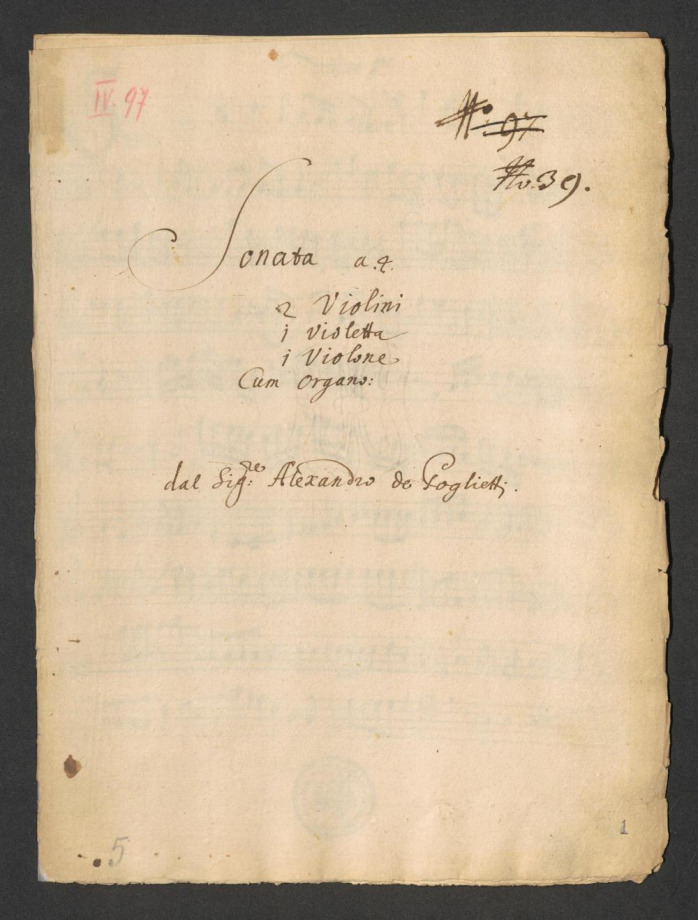 IV. 97
No. 97
No. 39.
Sonata a. 4.
2 Violini
1 Violetta
1 Violone
Cum Organo:
dal Sig:re Alexandro de Poglietti.
5
1